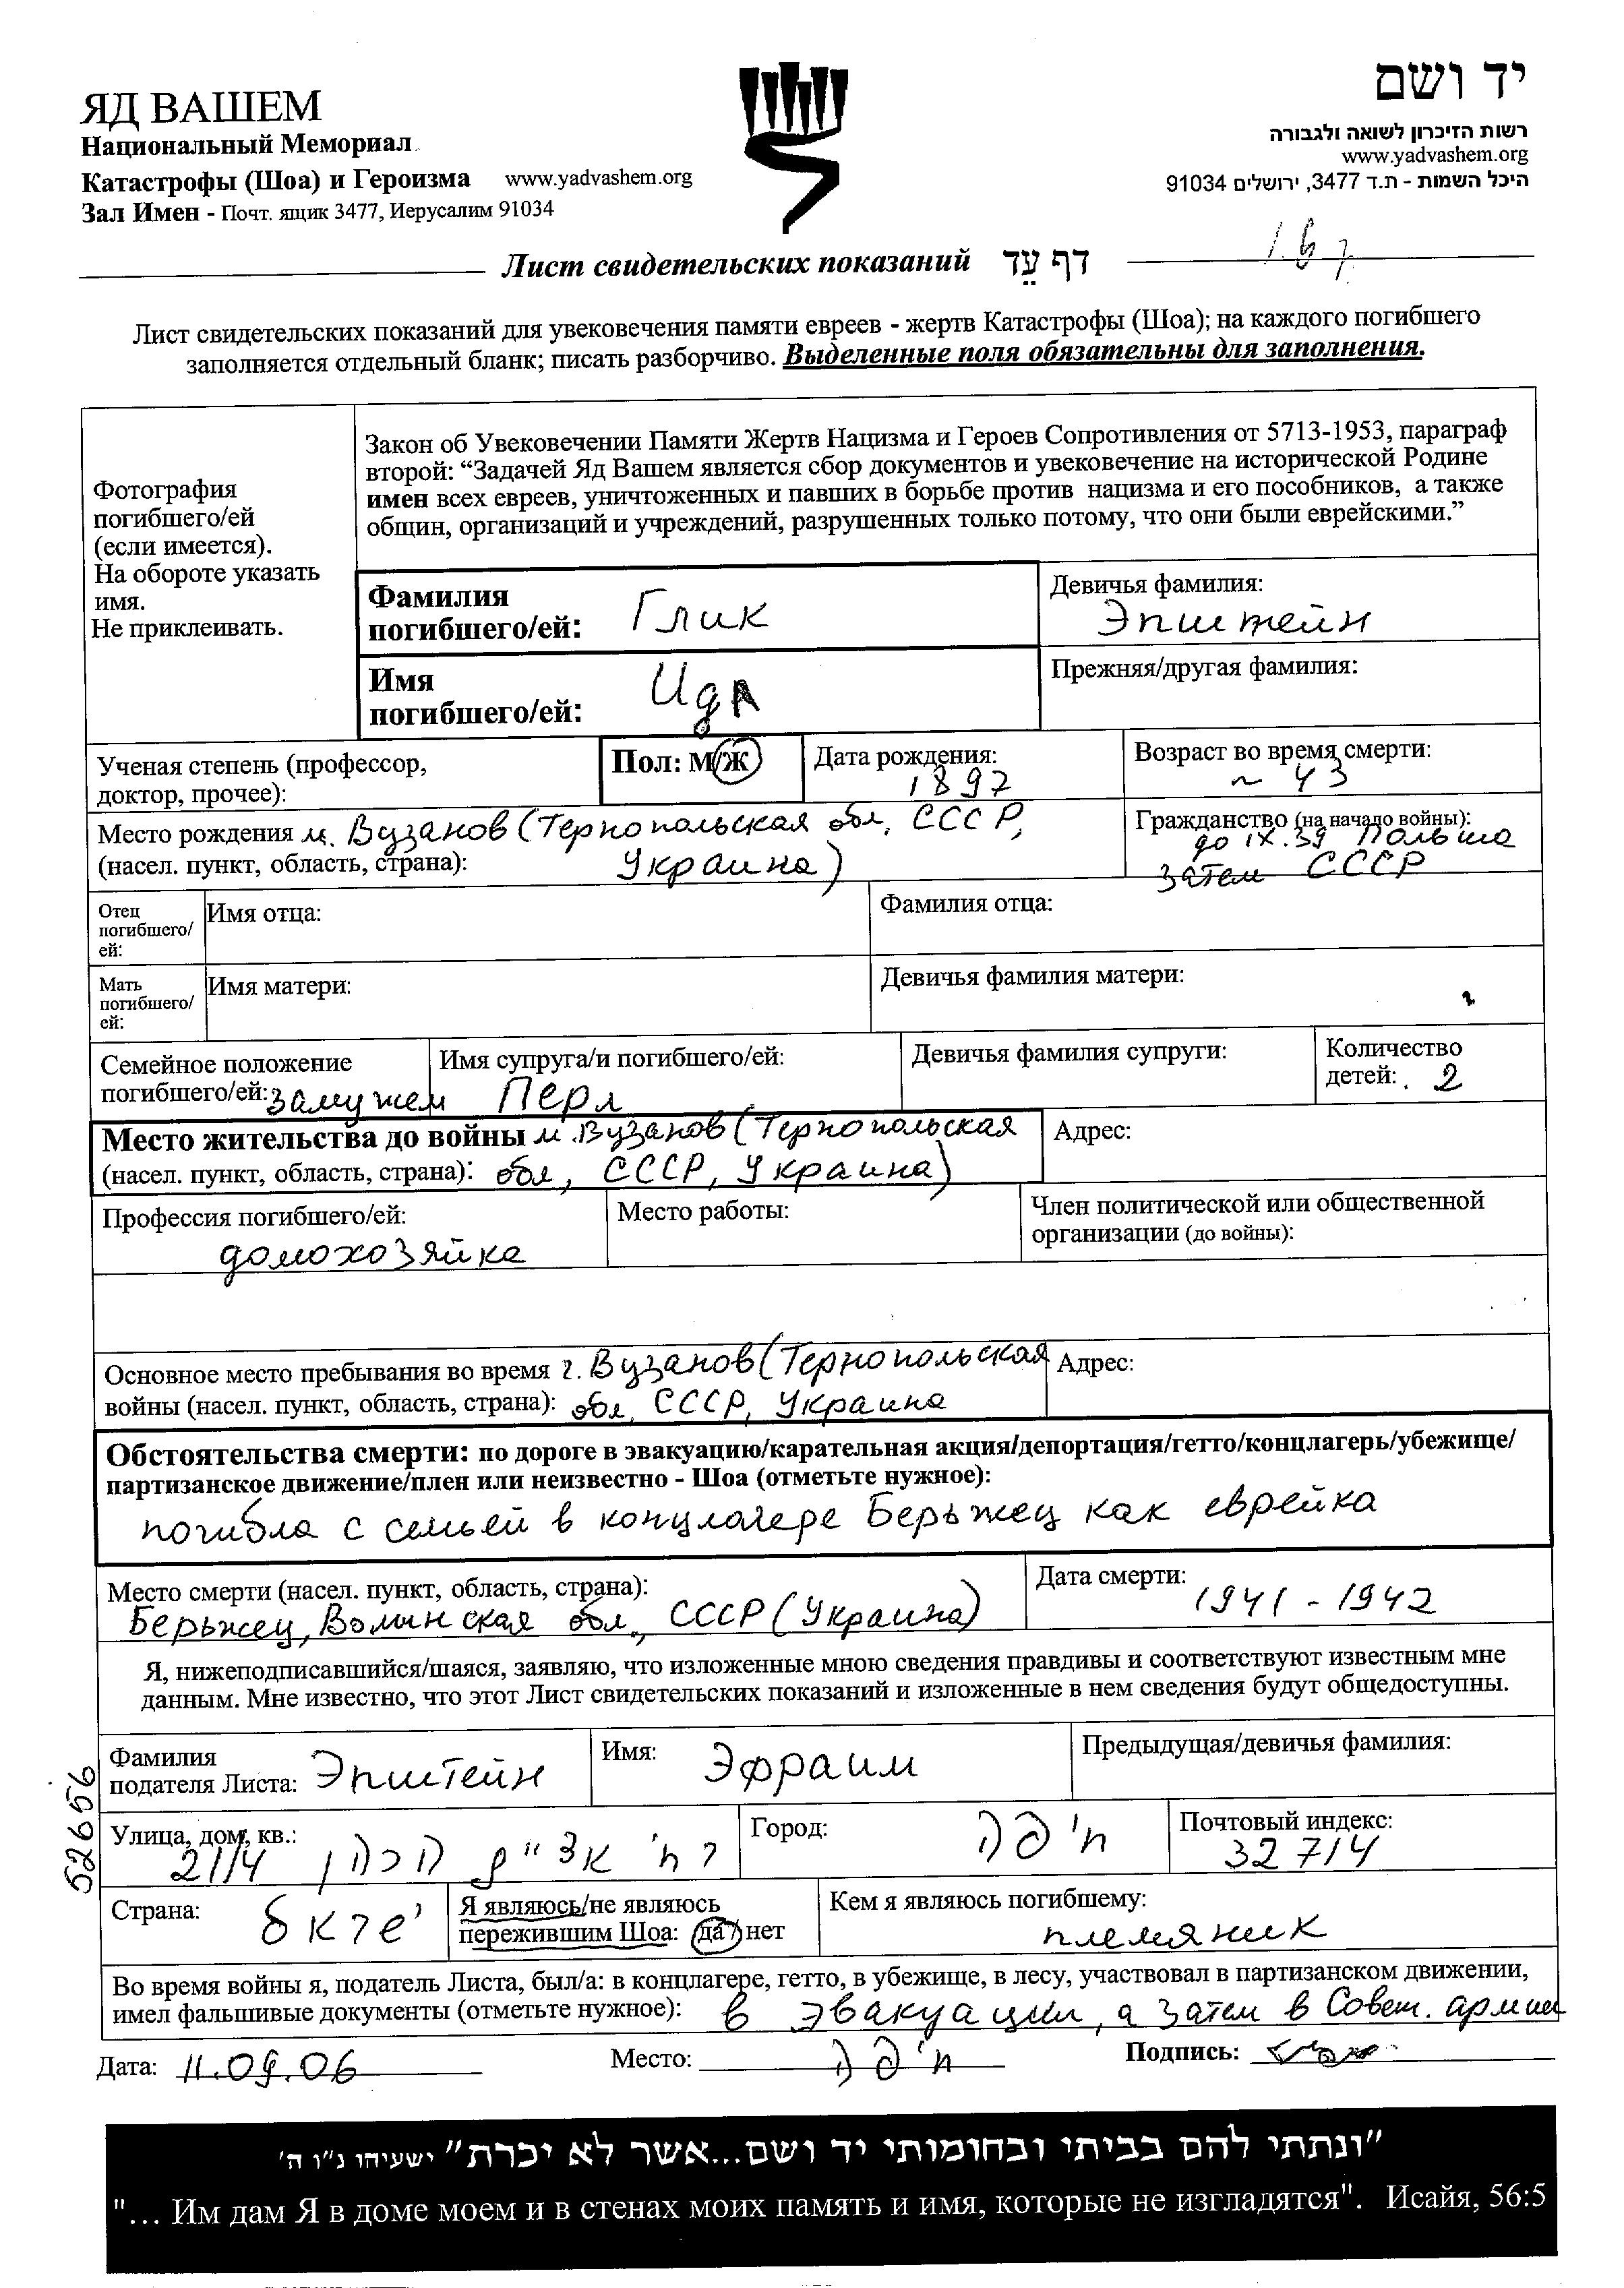 ЯД ВАШЕМ
Национальный Мемориал
Катастрофы (Шоа) и Героизма www.yadvashem.org
Зал Имен - Почт. ящик 3477, Иерусалим 91034
יד ושם
רשות הזיכרון לשואה ולגבורה
www.yadvashem.org
היכל השמות - ת.ד 3477, ירושלים 91034
Лист свидетельских показаний דף עֵד
Лист свидетельских показаний для увековечения памяти евреев - жертв Катастрофы (Шоа); на каждого погибшего
заполняется отдельный бланк; писать разборчиво. Выделенные поля обязательны для заполнения.
Фотография
погибшего/ей
(если имеется).
На обороте указать
имя.
Не приклеивать.
Закон об Увековечении Памяти Жертв Нацизма и Героев Сопротивления от 5713-1953, параграф
второй: “Задачей Яд Вашем является сбор документов и увековечение на исторической Родине
имен всех евреев, уничтоженных и павших в борьбе против нацизма и его пособников, а также
общин, организаций и учреждений, разрушенных только потому, что они были еврейскими.”
Фамилия
погибшего/ей: Глик
Девичья фамилия:
Эпштейн
Имя
погибшего/ей: Ида
Прежняя/другая фамилия:
Ученая степень (профессор,
доктор, прочее):
Пол: М/Ж
Дата рождения:
1897
Возраст во время смерти:
~ 43
Место рождения м. Вузанов (Тернопольская обл, СССР,
(насел. пункт, область, страна): Украина)
Гражданство (на начало войны):
до IX.39 Польша
затем СССР
Отец
погибшего/
ей:
Имя отца:
Фамилия отца:
Мать
погибшего/
ей:
Имя матери:
Девичья фамилия матери:
Семейное положение
погибшего/ей: замужем
Имя супруга/и погибшего/ей:
Перл
Девичья фамилия супруги:
Количество
детей: 2
Место жительства до войны м. Вузанов (Тернопольская
(насел. пункт, область, страна): обл, СССР, Украина)
Адрес:
Профессия погибшего/ей:
домохозяйка
Место работы:
Член политической или общественной
организации (до войны):
Основное место пребывания во время г. Вузанов (Тернопольская
войны (насел. пункт, область, страна): обл, СССР, Украина
Адрес:
Обстоятельства смерти: по дороге в эвакуацию/карательная акция/депортация/гетто/концлагерь/убежище/
партизанское движение/плен или неизвестно - Шоа (отметьте нужное):
погибла с семьей в концлагере Берьжец как еврейка
Место смерти (насел. пункт, область, страна):
Берьжец, Волынская обл., СССР (Украина)
Дата смерти:
1941 - 1942
Я, нижеподписавшийся/шаяся, заявляю, что изложенные мною сведения правдивы и соответствуют известным мне
данным. Мне известно, что этот Лист свидетельских показаний и изложенные в нем сведения будут общедоступны.
Фамилия
подателя Листа: Эпштейн
Имя: Эфраим
Предыдущая/девичья фамилия:
526656
Улица, дом, кв.:
21/4
Город: חיפה
Почтовый индекс:
32714
Страна:
Я являюсь/не являюсь
пережившим Шоа: да/нет
Кем я являюсь погибшему:
племяник
Во время войны я, податель Листа, был/а: в концлагере, гетто, в убежище, в лесу, участвовал в партизанском движении,
имел фальшивые документы (отметьте нужное): в эвакуации, а затем в Совет. армии
Дата: 11.09.06 Место: חיפה Подпись:
"ונתתי להם בביתי ובחומותי יד ושם...אשר לא יכרת" ישעיהו נ"ו ה'
"... Им дам Я в доме моем и в стенах моих память и имя, которые не изгладятся". Исайя, 56:5